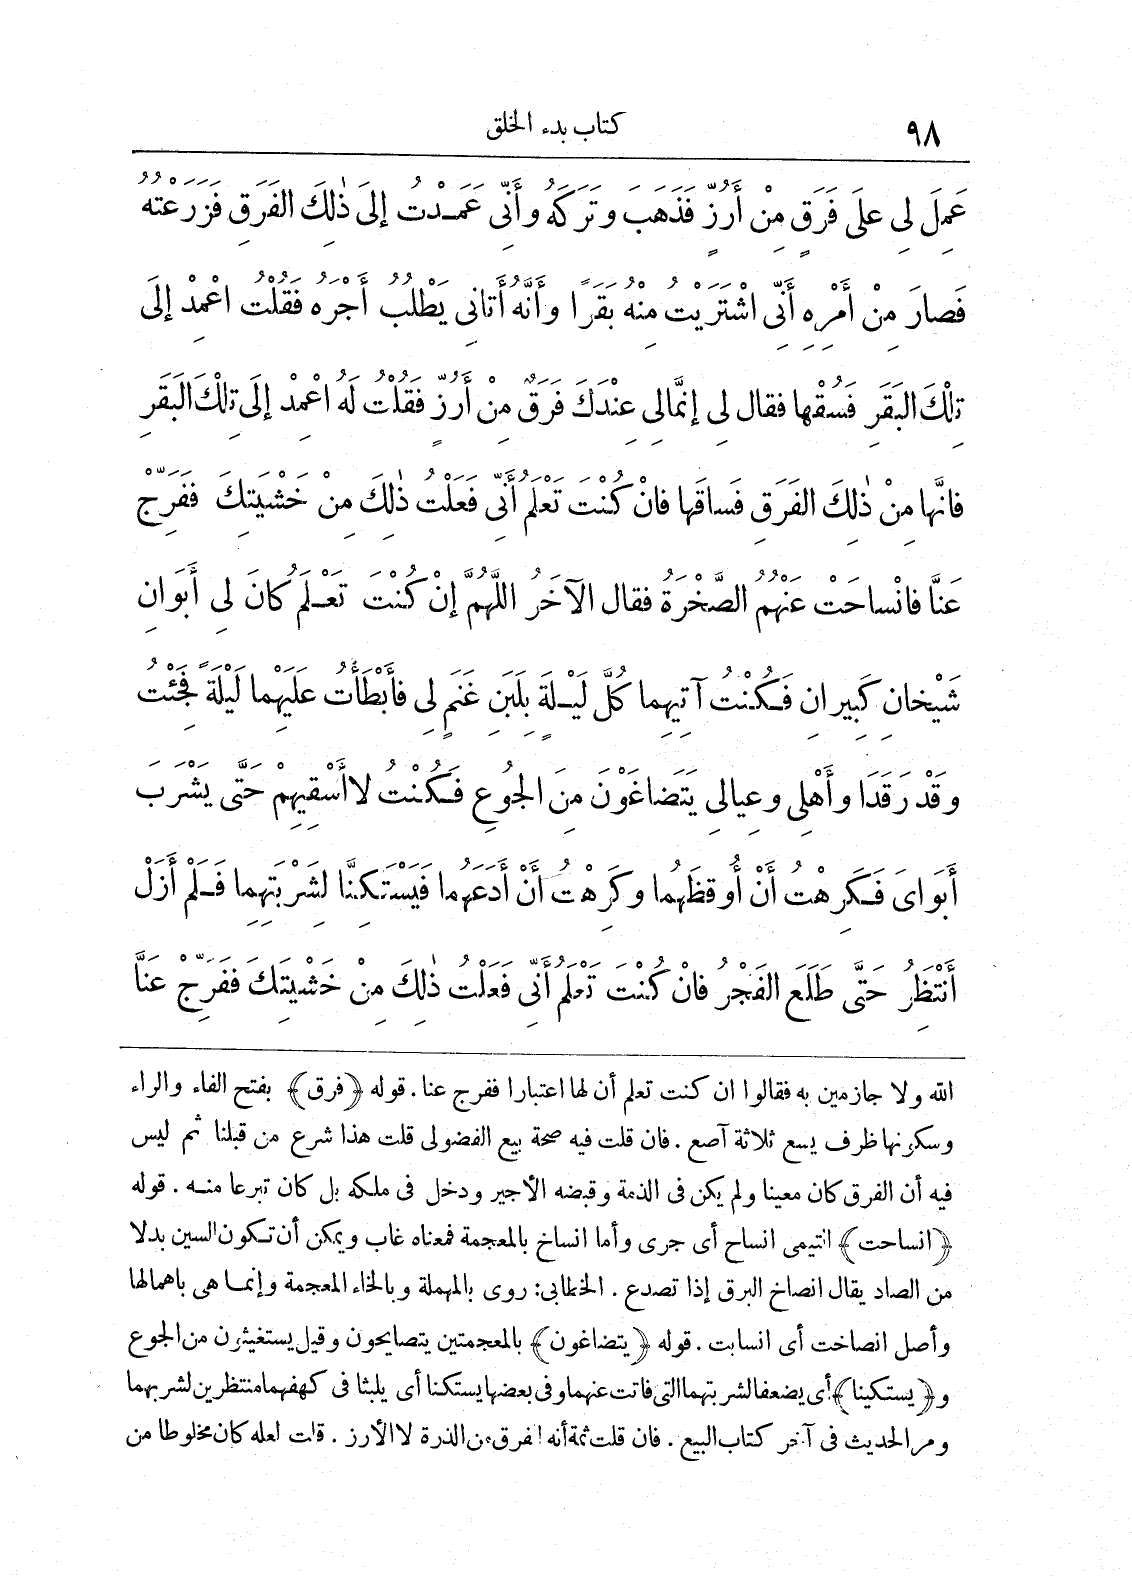 ٩٨
كتاب بدء الخلق
عَمِلَ لِي عَلَى فَرَقٍ مِنْ أَرُزٍّ فَذَهَبَ وَتَرَكَهُ وَأَنِّي عَمَدْتُ إِلَى ذٰلِكَ الفَرَقِ فَزَرَعْتُهُ
فَصَارَ مِنْ أَمْرِهِ أَنِّي اشْتَرَيْتُ مِنْهُ بَقَرًا وَأَنَّهُ أَتَانِي يَطْلُبُ أَجْرَهُ فَقُلْتُ اعْمِدْ إِلَى
تِلْكَ البَقَرِ فَسُقْهَا فقال لِي إِنَّمَا لِي عِنْدَكَ فَرَقٌ مِنْ أَرُزٍّ فَقُلْتُ لَهُ اعْمِدْ إِلَى تِلْكَ البَقَرِ
فانَّها مِنْ ذٰلِكَ الفَرَقِ فَساقَها فانْ كُنْتَ تَعْلَمُ أَنِّي فَعَلْتُ ذٰلِكَ مِنْ خَشْيَتِكَ فَفَرِّجْ
عَنَّا فانْساحَتْ عَنْهُمُ الصَّخْرَةُ فقال الآخَرُ اللّهُمَّ إِنْ كُنْتَ تَعْلَمُ كانَ لِي أَبَوَانِ
شَيْخانِ كَبِيرانِ فَكُنْتُ آتِيهِما كُلَّ لَيْلَةٍ بِلَبَنِ غَنَمٍ لِي فأَبْطَأْتُ علَيْهِما لَيْلَةً فَجِئْتُ
وقَدْ رَقَدَا وأَهْلِي وعِيالِي يَتَضاغَوْنَ مِنَ الجُوعِ فَكُنْتُ لا أَسْقِيهِمْ حَتَّى يَشْرَبَ
أَبَوَايَ فَكَرِهْتُ أَنْ أُوقِظَهُما وكَرِهْتُ أَنْ أَدَعَهُما فَيَسْتَكِنَّا لِشَرْبَتِهِما فَلَمْ أَزَلْ
أَنْتَظِرُ حَتَّى طَلَعَ الفَجْرُ فانْ كُنْتَ تَعْلَمُ أَنِّي فَعَلْتُ ذٰلِكَ مِنْ خَشْيَتِكَ فَفَرِّجْ عَنَّا
الله ولا جازمين به فقالوا ان كنت تعلم أن لها اعتبارا ففرج عنا . قوله ﴿فرق﴾ بفتح الفاء والراء
وسكونها ظرف يسع ثلاثة آصع . فان قلت فيه صحة بيع الفضولى قلت هذا شرع من قبلنا ثم ليس
فيه أن الفرق كان معينا ولم يكن فى الذمة وقبضه الأجير ودخل فى ملكه بل كان تبرعا منه . قوله
﴿انساحت﴾ التيمى انساح أى جرى وأما انساخ بالمعجمة فمعناه غاب ويمكن أن تكون السين بدلا
من الصاد يقال انصاخ البرق إذا تصدع . الخطابى: روى بالمهملة وبالخاء المعجمة وإنما هى باهمالها
وأصل انصاخت أى انسابت . قوله ﴿يتضاغون﴾ بالمعجمتين يتصايحون وقيل يستغيثون من الجوع
و﴿يستكينا﴾ أى يضعفا لشربتهما التى فاتت عنهما وفى بعضها يستكنا أى يلبثا فى كهفهما منتظرين لشربهما
ومر الحديث فى آخر كتاب البيع . فان قلت ثمة أنه الفرق من الذرة لا الأرز . قلت لعله كان مخلوطا من